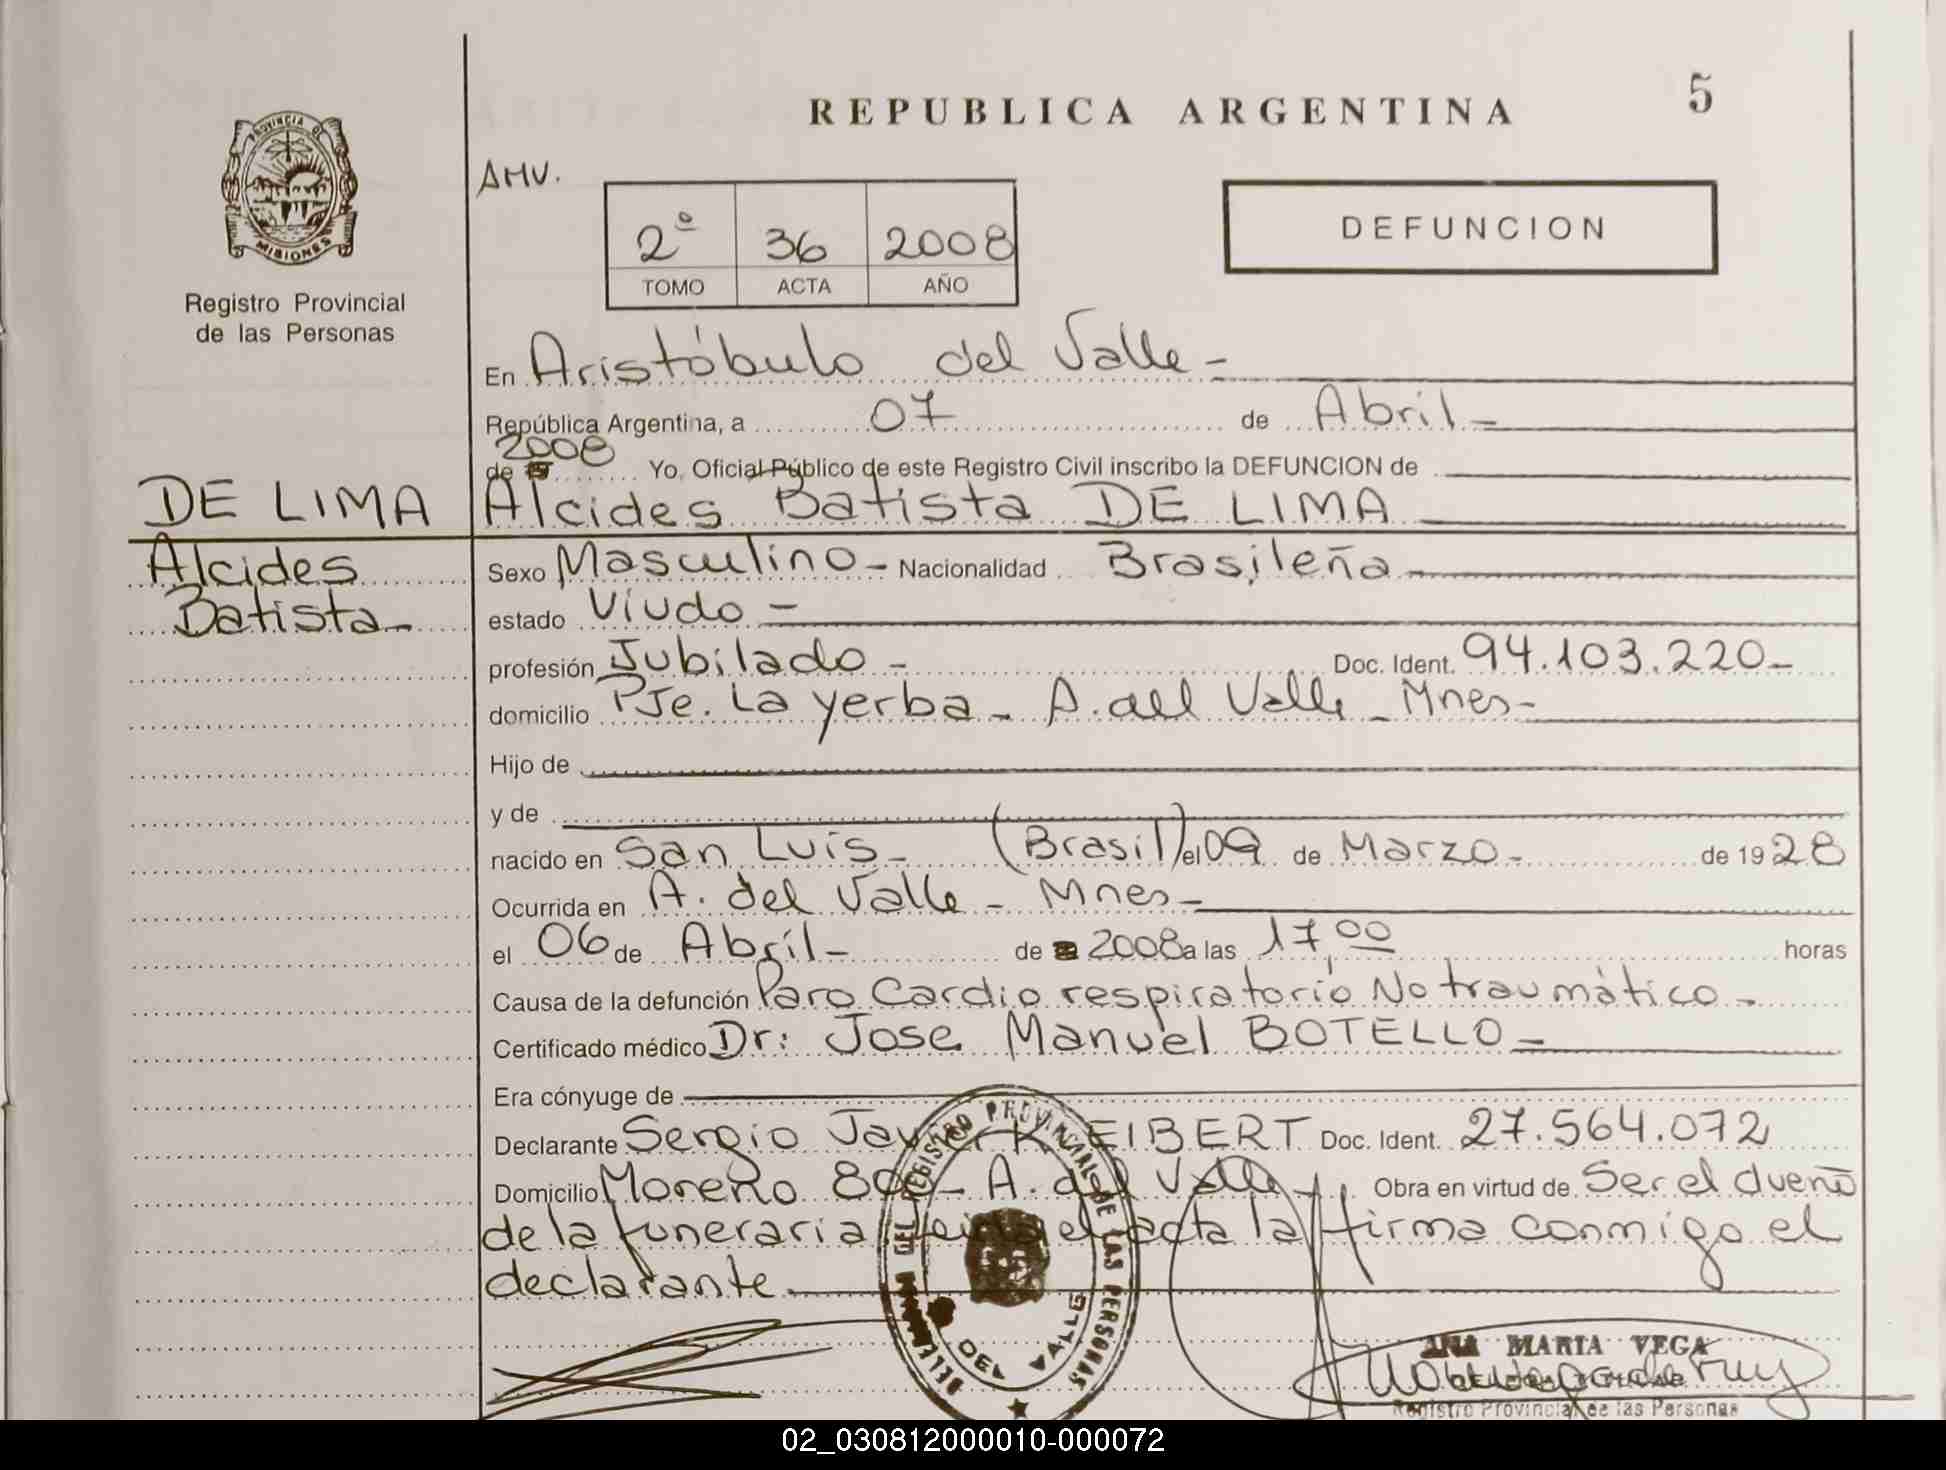 REPUBLICA ARGENTINA
5
PROVINCIA DE
MISIONES
Registro Provincial
de las Personas
AMV.
2º 36 2008
TOMO ACTA AÑO
DEFUNCION
En Aristóbulo del Valle -
República Argentina, a 07 de Abril -
de 2008 Yo, Oficial Público de este Registro Civil inscribo la DEFUNCION de
DE LIMA
Alcides
Batista -
Alcides Batista DE LIMA
Sexo Masculino - Nacionalidad Brasileña -
estado Viudo -
profesión Jubilado - Doc. Ident. 94.103.220 -
domicilio PJe. La yerba - A. del Valle - Mnes -
Hijo de
y de
nacido en San Luis - (Brasil) el 09 de Marzo - de 1928
Ocurrida en A. del Valle - Mnes -
el 06 de Abril - de 2008 a las 17,00 horas
Causa de la defunción Paro Cardio respiratorio No traumático -
Certificado médico Dr: Jose Manuel BOTELLO -
Era cónyuge de
Declarante Sergio Javier KLEIBERT Doc. Ident. 27.564.072
Domicilio Moreno 800 - A. del Valle - Obra en virtud de Ser el dueño
de la funeraria leida el acta la firma conmigo el
declarante
DEL REGISTRO PROVINCIAL DE LAS PERSONAS
DEL VALLE
ANA MARIA VEGA
Registro Provincial de las Personas
02_030812000010-000072